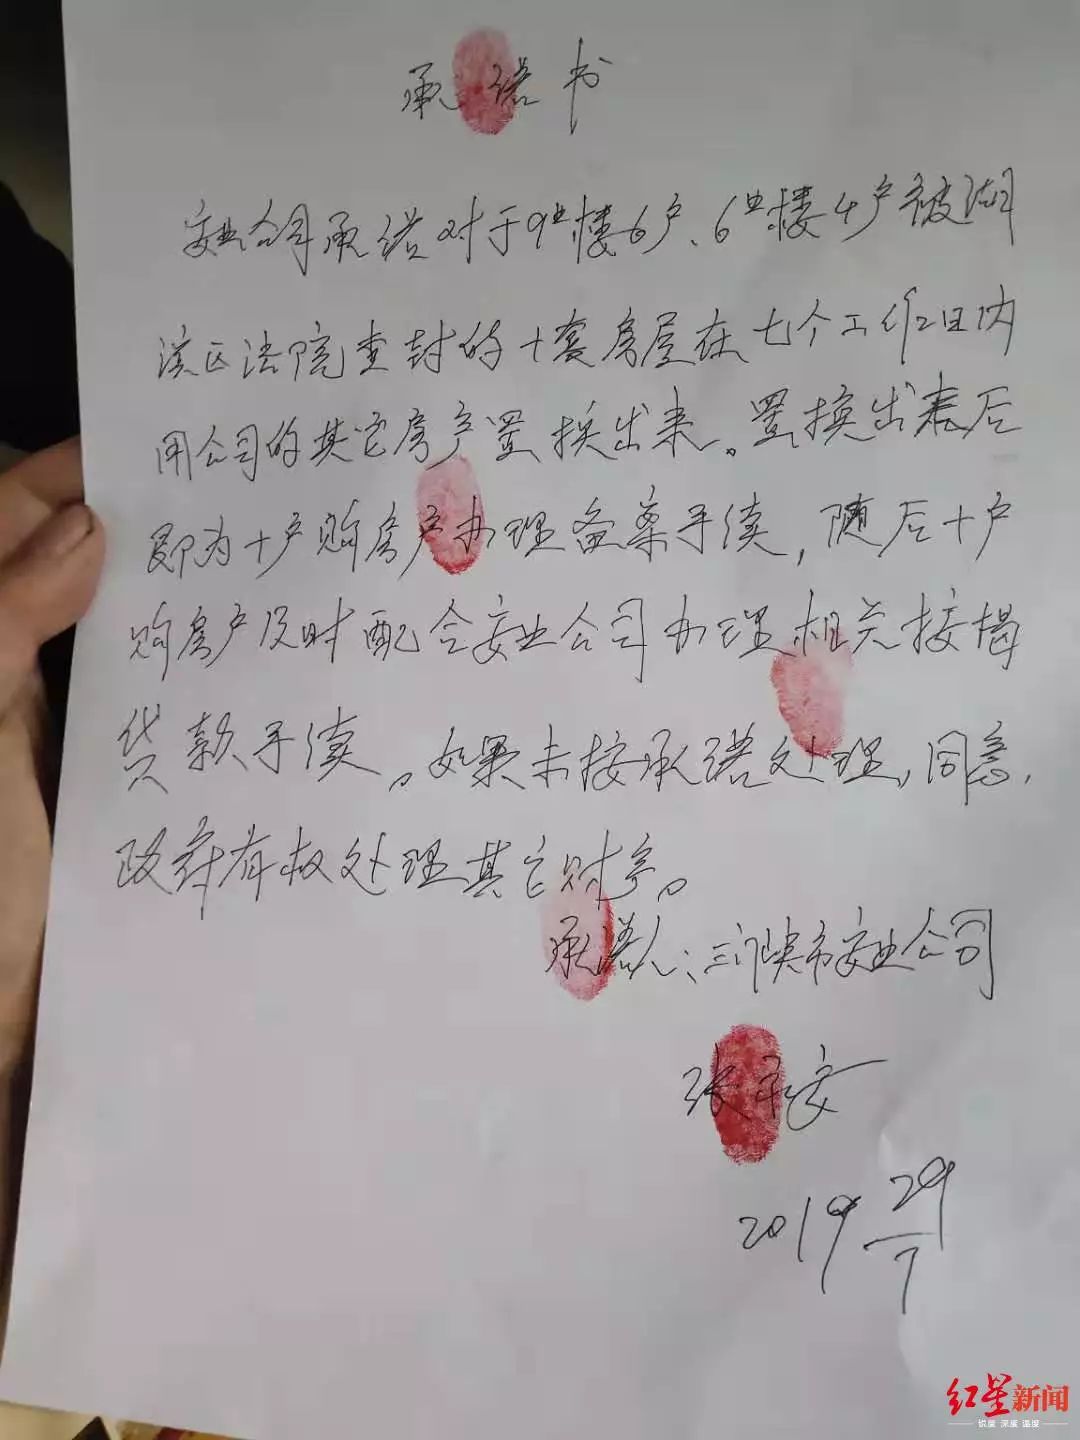 承诺书
安业公司承诺对于9#楼6户、6#楼4户被湖
滨区法院查封的十套房屋在七个工作日内
用公司的其它房产置换出来。置换出来后
即为十户购房户办理备案手续，随后十户
购房户及时配合安业公司办理相关按揭
贷款手续。如果未按承诺处理，同意
政府有权处理其它财产。
承诺人：三门峡市安业公司
张
2019 29/7
红星新闻
锐度 深度 温度